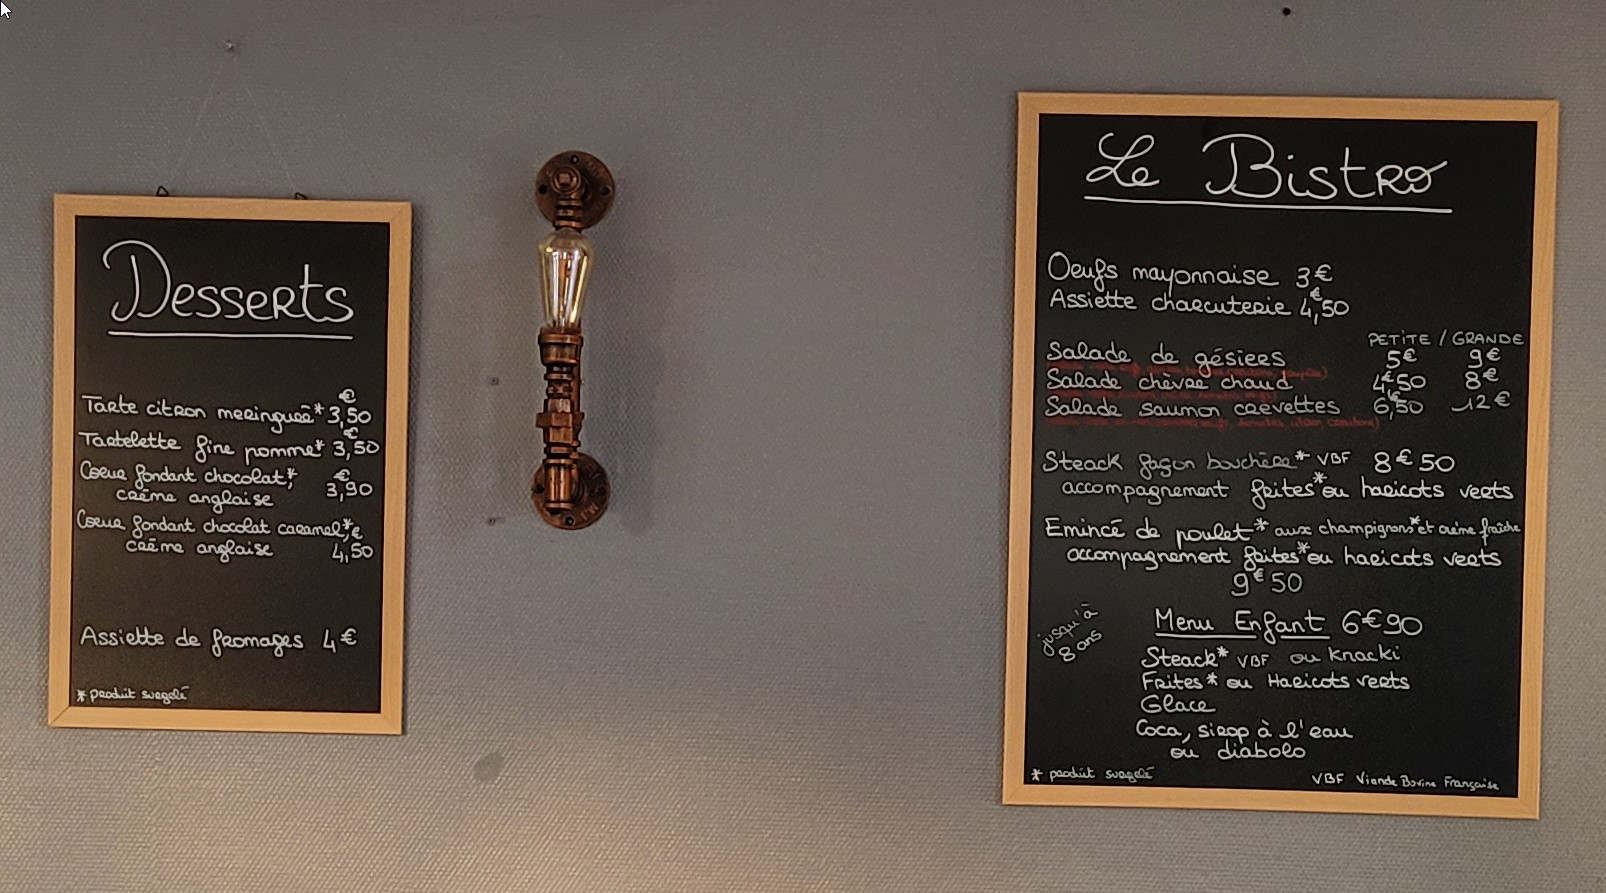 Desserts
Tarte citron meringuée* 3,50 €
Tartelette fine pomme* 3,50 €
Coeur fondant chocolat*,
crème anglaise 3,90 €
Coeur fondant chocolat caramel*,
crème anglaise 4,50 €
Assiette de fromages 4€
* produit surgelé
Le Bistro
Oeufs mayonnaise 3€
Assiette charcuterie 4,50 €
PETITE / GRANDE
Salade de gésiers 5€ 9€
Salade chèvre chaud 4€50 8€
Salade saumon crevettes 6,50 € 12€
Steack façon bouchère* VBF 8€50
accompagnement frites* ou haricots verts
Emincé de poulet* aux champignons* et crème fraîche
accompagnement frites* ou haricots verts
9€50
jusqu'à
8 ans
Menu Enfant 6€90
Steack* VBF ou knacki
Frites* ou Haricots verts
Glace
Coca, sirop à l'eau
ou diabolo
* produit surgelé
VBF Viande Bovine Française